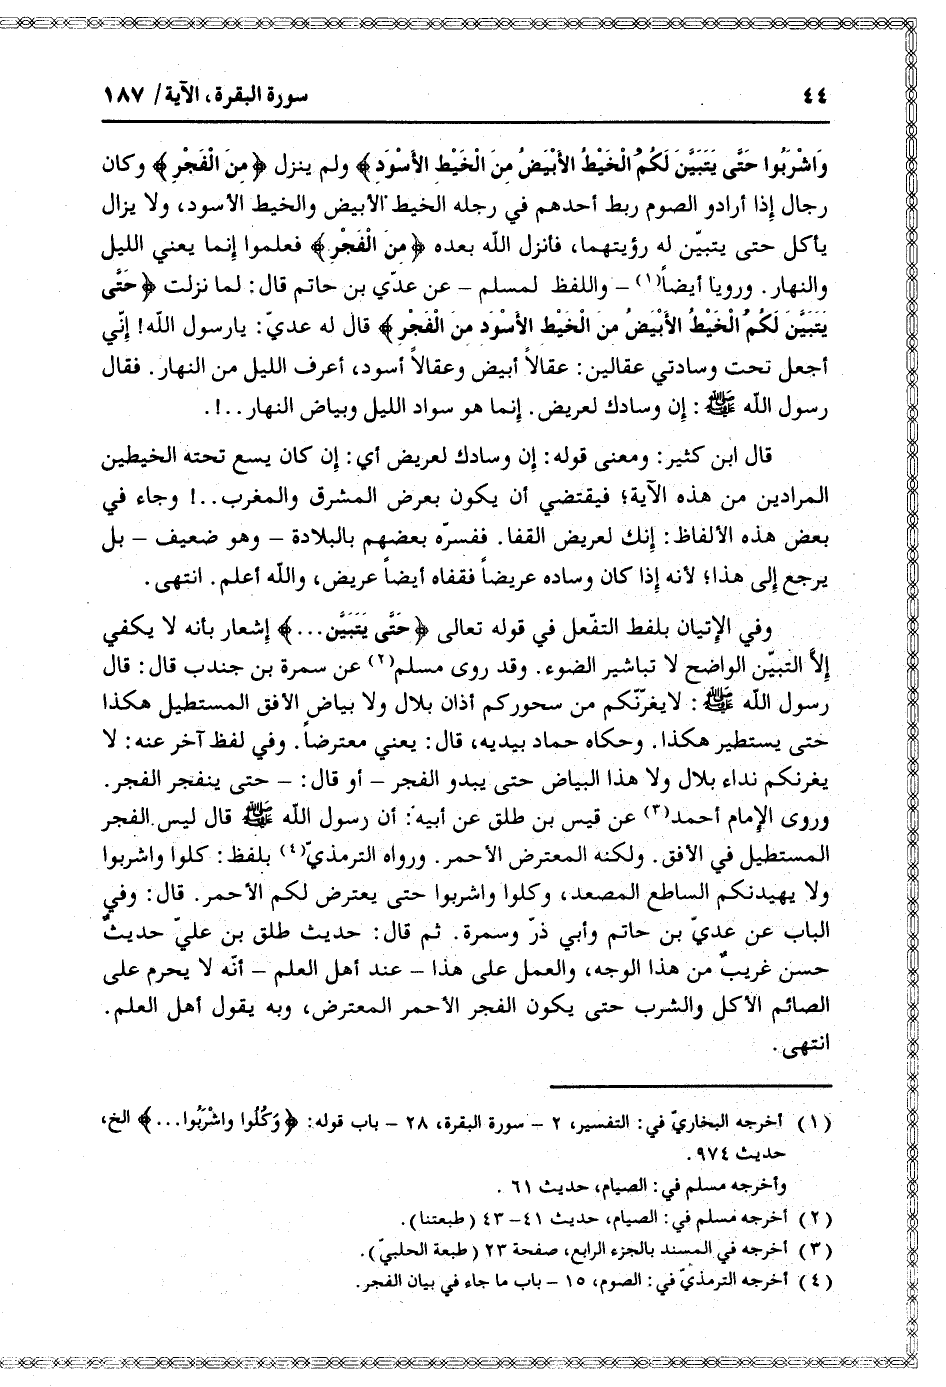 ٤٤
سورة البقرة، الآية/ ١٨٧
وَاشْرَبُوا حَتَّى يَتَبَيَّنَ لَكُمُ الْخَيْطُ الأَبْيَضُ مِنَ الْخَيْطِ الأَسْوَدِ﴾ ولم ينزل ﴿مِنَ الْفَجْرِ﴾ وكان
رجال إذا أرادو الصوم ربط أحدهم في رجله الخيط الأبيض والخيط الأسود، ولا يزال
يأكل حتى يتبيّن له رؤيتهما، فأنزل اللّه بعده ﴿مِنَ الْفَجْرِ﴾ فعلموا إنما يعني الليل
والنهار. ورويا أيضاً(١) – واللفظ لمسلم – عن عديّ بن حاتم قال: لما نزلت ﴿حَتَّى
يَتَبَيَّنَ لَكُمُ الْخَيْطُ الأَبْيَضُ مِنَ الْخَيْطِ الأَسْوَدِ مِنَ الْفَجْرِ﴾ قال له عديّ: يارسول اللّه! إنّي
أجعل تحت وسادتي عقالين: عقالاً أبيض وعقالاً أسود، أعرف الليل من النهار. فقال
رسول اللّه ﷺ: إن وسادك لعريض. إنما هو سواد الليل وبياض النهار..!.
قال ابن كثير: ومعنى قوله: إن وسادك لعريض أي: إن كان يسع تحته الخيطين
المرادين من هذه الآية؛ فيقتضي أن يكون بعرض المشرق والمغرب..! وجاء في
بعض هذه الألفاظ: إنك لعريض القفا. ففسرّه بعضهم بالبلادة – وهو ضعيف – بل
يرجع إلى هذا؛ لأنه إذا كان وساده عريضاً فقفاه أيضاً عريض، واللّه أعلم. انتهى.
وفي الإتيان بلفظ التفّعل في قوله تعالى ﴿حَتَّى يَتَبَيَّنَ...﴾ إشعار بأنه لا يكفي
إلاَّ التبيّن الواضح لا تباشير الضوء. وقد روى مسلم(٢) عن سمرة بن جندب قال: قال
رسول اللّه ﷺ: لايغرّنّكم من سحوركم أذان بلال ولا بياض الأفق المستطيل هكذا
حتى يستطير هكذا. وحكاه حماد بيديه، قال: يعني معترضاً. وفي لفظ آخر عنه: لا
يغرنكم نداء بلال ولا هذا البياض حتى يبدو الفجر – أو قال: – حتى ينفجر الفجر.
وروى الإمام أحمد(٣) عن قيس بن طلق عن أبيه: أن رسول اللّه ﷺ قال ليس الفجر
المستطيل في الأفق. ولكنه المعترض الأحمر. ورواه الترمذيّ(٤) بلفظ: كلوا واشربوا
ولا يهيدنكم الساطع المصعد، وكلوا واشربوا حتى يعترض لكم الأحمر. قال: وفي
الباب عن عديّ بن حاتم وأبي ذرّ وسمرة. ثم قال: حديث طلق بن عليّ حديثٌ
حسن غريبٌ من هذا الوجه، والعمل على هذا – عند أهل العلم – أنّه لا يحرم على
الصائم الأكل والشرب حتى يكون الفجر الأحمر المعترض، وبه يقول أهل العلم.
انتهى.
(١) أخرجه البخاريّ في: التفسير، ٢ – سورة البقرة، ٢٨ – باب قوله: ﴿وَكُلُوا واشْرَبُوا...﴾ الخ،
حديث ٩٧٤.
وأخرجه مسلم في: الصيام، حديث ٦١.
(٢) أخرجه مسلم في: الصيام، حديث ٤١– ٤٣ (طبعتنا).
(٣) أخرجه في المسند بالجزء الرابع، صفحة ٢٣ (طبعة الحلبيّ).
(٤) أخرجه الترمذيّ في: الصوم، ١٥ – باب ما جاء في بيان الفجر.